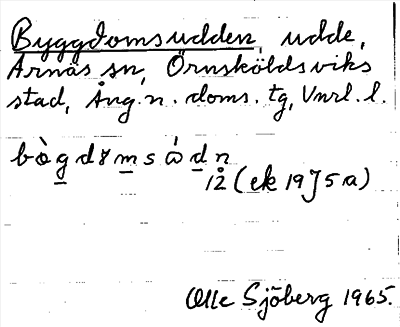 Byggdomsudden, udde,
Arnäs sn, Örnsköldsviks
stad, Ång. n. doms. tg, Vnrl. l.
bògd8msὠdn
12 (ek 19J5 a)
Olle Sjöberg 1965.